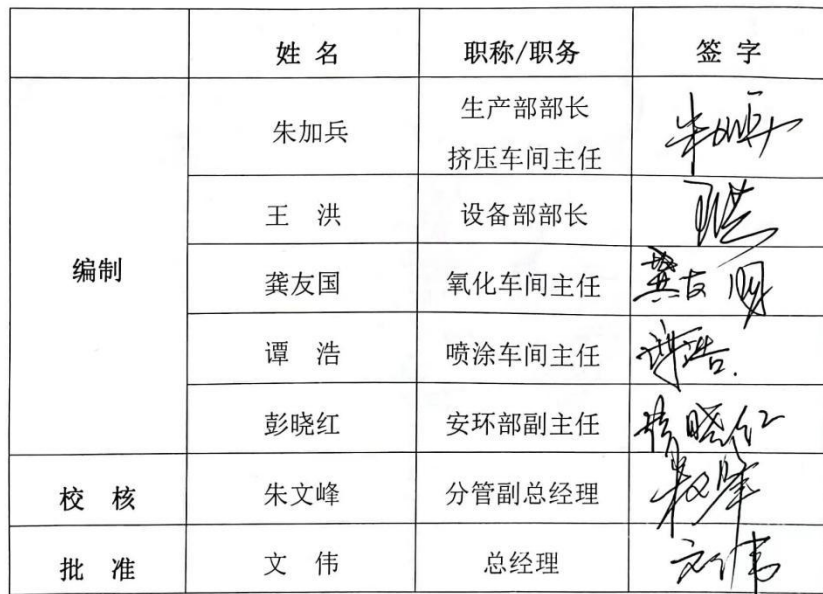 姓 名 职称/职务 签 字
编制
朱加兵 生产部部长
挤压车间主任 朱加兵
王 洪 设备部部长 王洪
龚友国 氧化车间主任 龚友国
谭 浩 喷涂车间主任 谭浩
彭晓红 安环部副主任 彭晓红
校 核 朱文峰 分管副总经理 朱文峰
批 准 文 伟 总经理 文伟